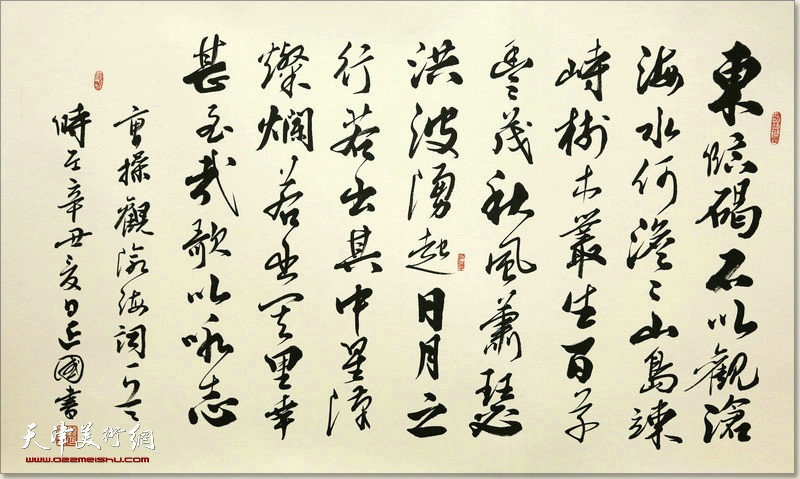 東臨碣石以觀滄
海水何澹〻山島竦
峙樹木叢生百草
豐茂秋風蕭瑟
洪波湧起日月之
行若出其中星漢
燦爛若出其里幸
甚至哉歌以咏志
曹操觀滄海詞一首
時在辛丑夏日國書
天津美術網
www.022meishu.com